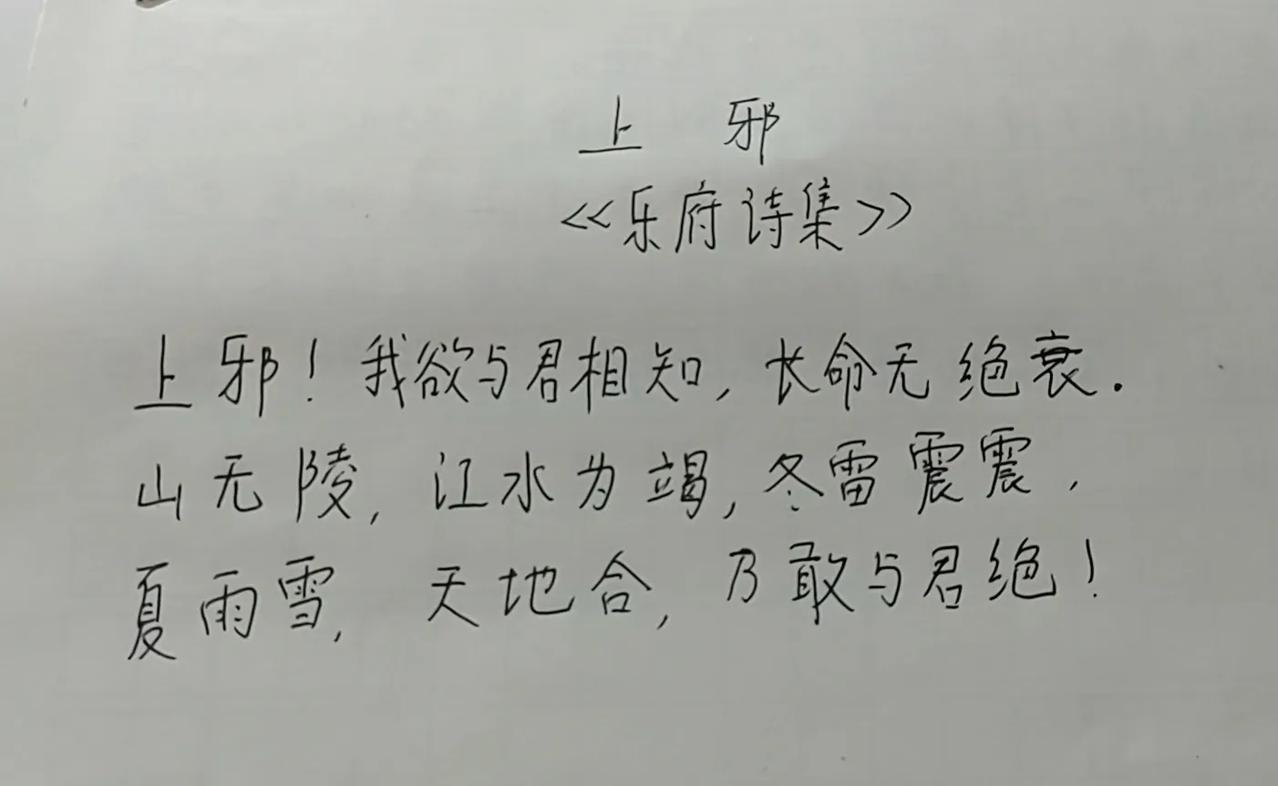 上邪
<<乐府诗集>>
上邪！我欲与君相知，长命无绝衰．
山无陵，江水为竭，冬雷震震，
夏雨雪，天地合，乃敢与君绝！